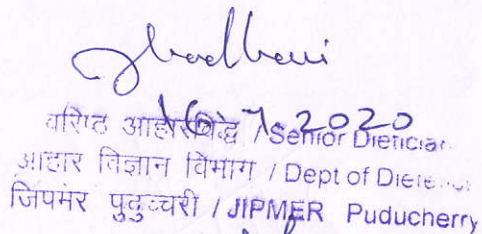 16.7.2020
वरिष्ठ आहारविद् / Senior Dietician
आहार विज्ञान विभाग / Dept of
जिपमर पुदुच्चरी / JIPMER Puducherry